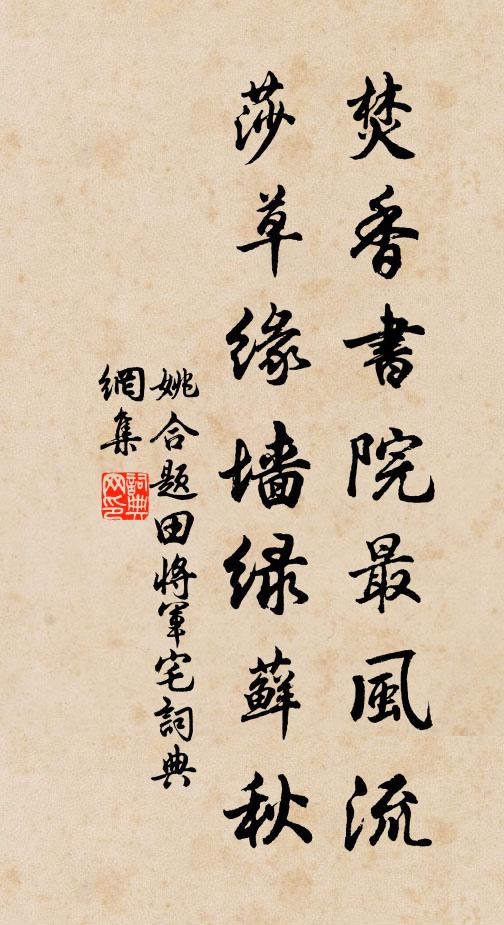 焚香書院最風流
莎草緣墙緑蘚秋
姚合题田將軍宅詞典
網集
詞典
网印